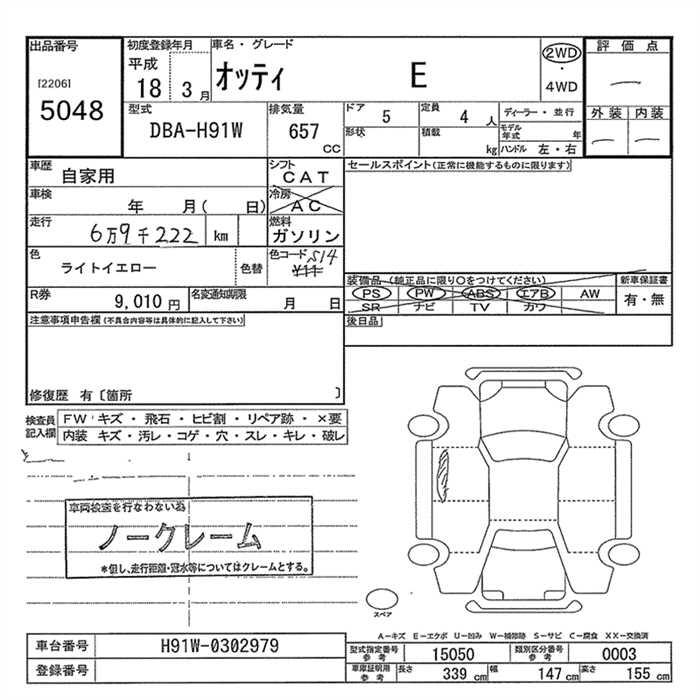 出品番号
[2206]
5048
初度登録年月
平成
18 3月
車名・グレード
オッティ E
2WD
・
4WD
評価点
外装 内装
型式
DBA-H91W
排気量
657
CC
ドア 5
形状
定員 4 人
積載 kg
ディーラー・並行
モデル年式 年
ハンドル 左・右
車歴 自家用
シフト
CAT
車検 年 月( 日)
冷房
AC
走行 6万9千222 km
燃料
ガソリン
色 ライトイエロー 色替
色コード S14
R券 9,010円
名変通知期限 月 日
セールスポイント(正常に機能するものに限ります)
装備品(純正品に限り○をつけてください) 新車保証書
PS PW ABS エアB AW 有・無
SR ナビ TV カワ
後日品
注意事項申告欄(不具合内容等は具体的に記入して下さい)
修復歴 有〔箇所 〕
検査員記入欄
FW キズ・飛石・ヒビ割・リペア跡・×要
内装 キズ・汚レ・コゲ・穴・スレ・キレ・破レ
車両検査を行なわない為
ノークレーム
*但し、走行距離・冠水等についてはクレームとする。
スペア
A－キズ E－エクボ U－凹み W－補修跡 S－サビ C－腐食 XX－交換済
車台番号 H91W-0302979
登録番号
型式指定番号参考 15050 類別区分番号参考 0003
車庫証明用参考 長さ 339 cm 幅 147 cm 高さ 155 cm